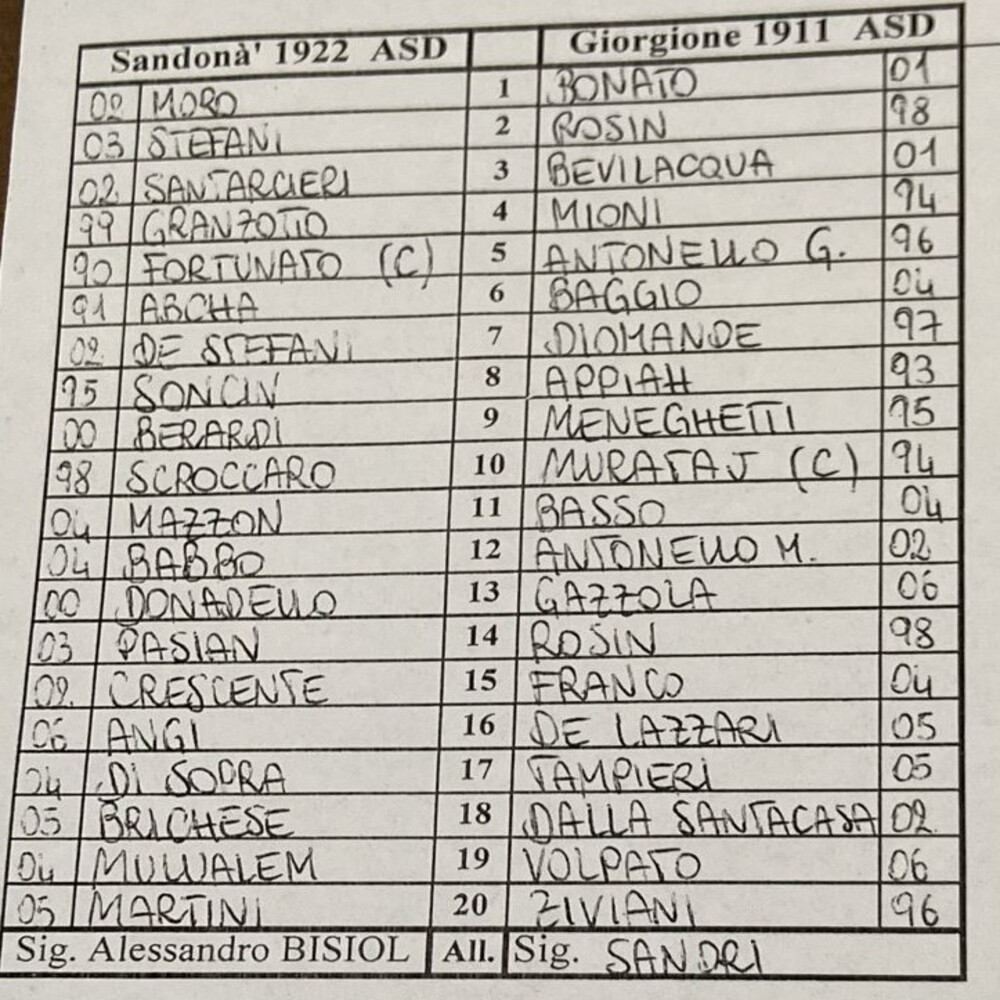 Sandonà' 1922 ASD Giorgione 1911 ASD
02 MORO 1 BONATO 01
03 STEFANI 2 ROSIN 98
02 SANTARCIERI 3 BEVILACQUA 01
99 GRANZOTTO 4 MIONI 94
90 FORTUNATO (C) 5 ANTONELLO G. 96
91 ABCHA 6 BAGGIO 04
02 DE STEFANI 7 DIOMANDE 97
95 SONCIN 8 APPIAH 93
00 BERARDI 9 MENEGHETTI 95
98 SCROCCARO 10 MURATAJ (C) 94
04 MAZZON 11 BASSO 04
04 BABBO 12 ANTONELLO M. 02
00 DONADELLO 13 GAZZOLA 06
03 PASIAN 14 ROSIN 98
02 CRESCENTE 15 FRANCO 04
06 ANGI 16 DE LAZZARI 05
04 DI SOPRA 17 TAMPIERI 05
05 BRICHESE 18 DALLA SANTACASA 02
04 MULUALEM 19 VOLPATO 06
05 MARTINI 20 ZIVIANI 96
Sig. Alessandro BISIOL All. Sig. SANDRI